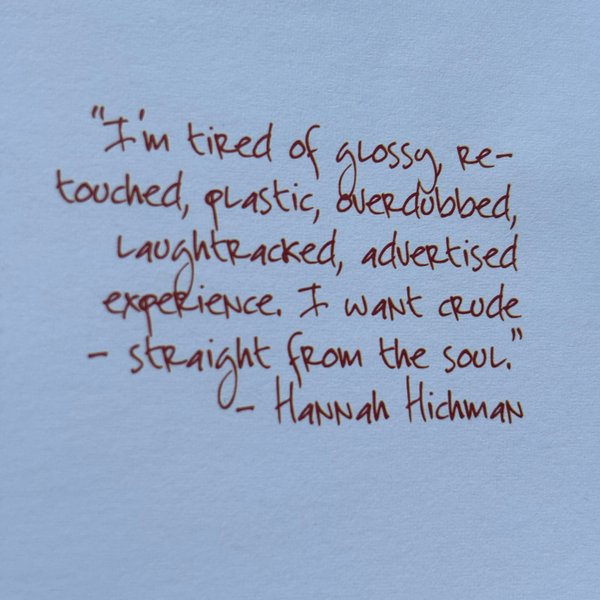 "I'm tired of glossy, re-
touched, plastic, overdubbed,
laughtracked, advertised
experience. I want crude
- straight from the soul."
- Hannah Hichman